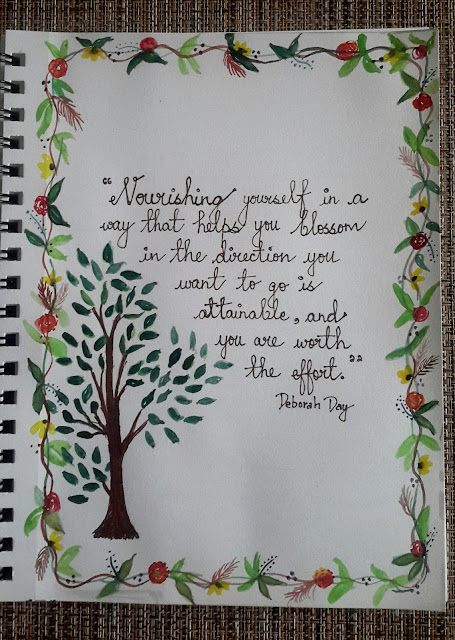 “Nourishing yourself in a
way that helps you blossom
in the direction you
want to go is
attainable, and
you are worth
the effort.”
Deborah Day